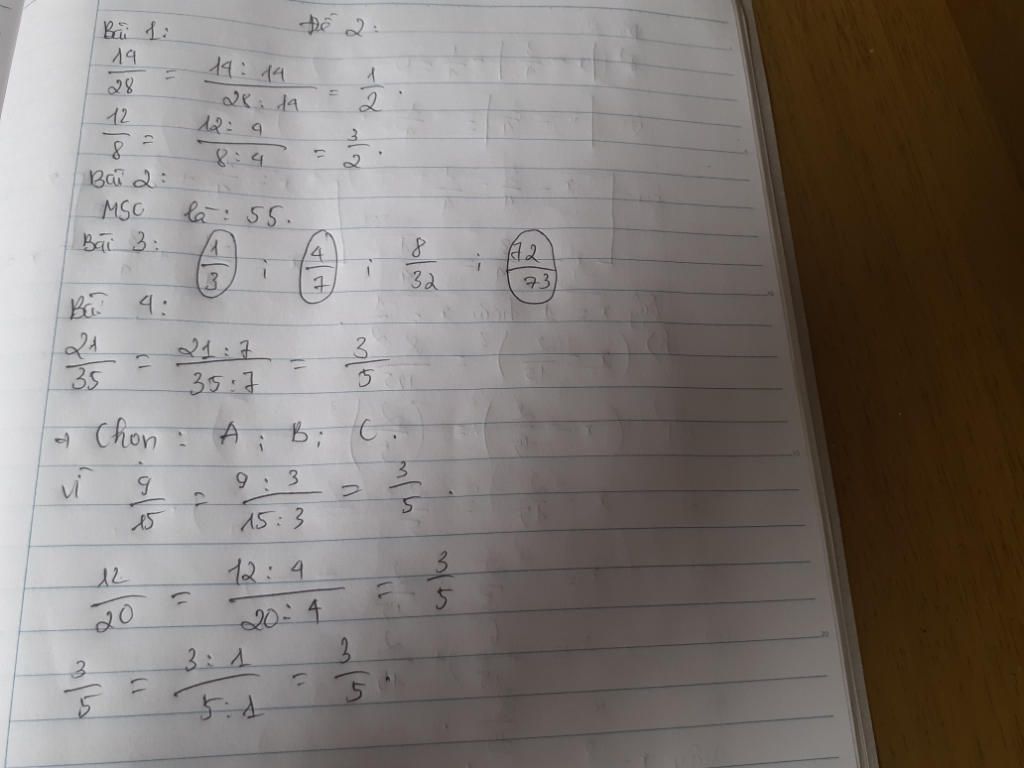 Bài 1: Đề 2:
14/28 = 14:14/28:14 = 1/2.
12/8 = 12:4/8:4 = 3/2.
Bài 2:
MSC là: 55.
Bài 3: 1/3 ; 4/7 ; 8/32 ; 72/73
Bài 4:
21/35 = 21:7/35:7 = 3/5
→ Chọn: A; B; C.
Vì 9/15 = 9:3/15:3 = 3/5.
12/20 = 12:4/20:4 = 3/5
3/5 = 3:1/5:1 = 3/5.